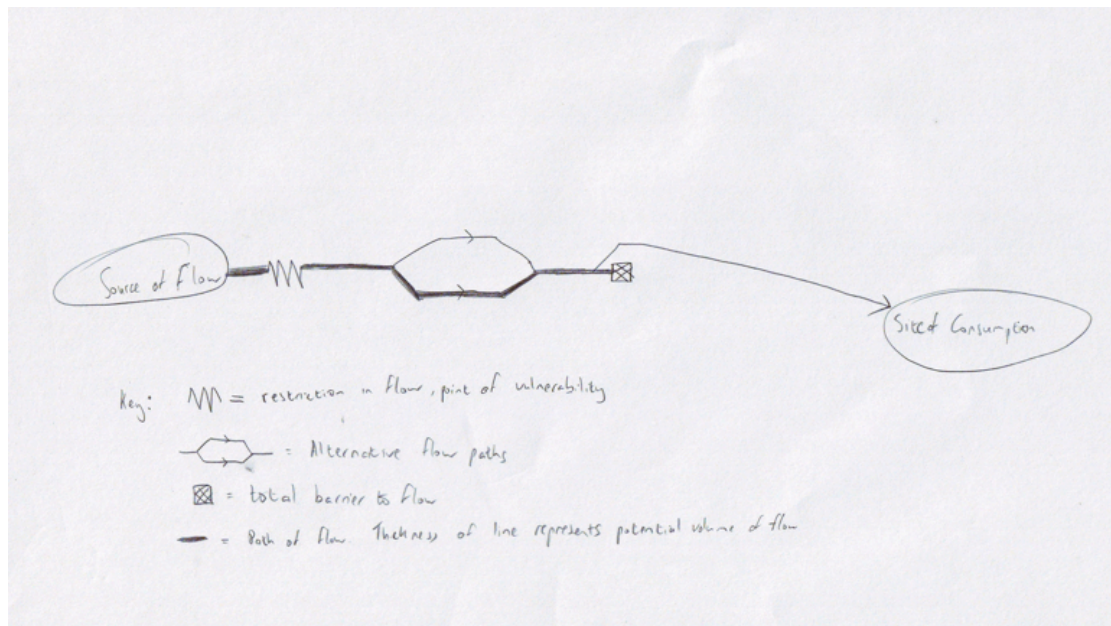 Source of Flow
Site of Consumption
Key: = restriction in flow, point of vulnerability
= Alternative flow paths
= total barrier to flow
= Path of flow. Thickness of line represents potential volume of flow